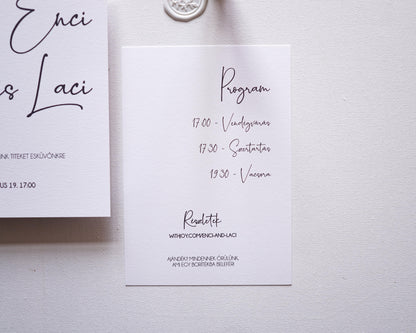 Enci
s Laci
NK TITEKET ESKÜVŐNKRE
US 19. 17:00
Program
17:00 - Vendégvárás
17:30 - Szertartás
19:30 - Vacsora
Részletek
WITHJOY.COM/ENCI-AND-LACI
AJÁNDÉK? MINDENNEK ÖRÜLÜNK,
AMI EGY BORÍTÉKBA BELEFÉR!